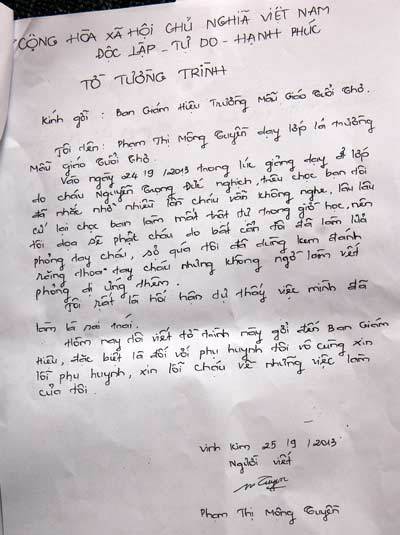 CỘNG HÒA XÃ HỘI CHỦ NGHĨA VIẾT NAM
ĐỘC LẬP - TỰ DO - HẠNH PHÚC
TỜ TƯỜNG TRÌNH
Kính gỏi : Ban Giám Hiệu Trường Mẫu Giáo Tuổi Thơ.
Tôi tên: Phạm Thị Mông Tuyền dạy lớp lá trường
Mẫu giáo Tuổi Thơ.
Vào ngày 24/9/2013 trong lúc giảng dạy ở lớp
do cháu Nguyễn Trọng Đức nghịch, trêu chọc bạn tôi
đã nhắc nhở nhiều lần cháu vẫn không nghe, lâu lâu
cứ lại chọc bạn làm mất trật tự trong giờ học, nên
tôi dọa sẽ phạt cháu do bất cẩn tôi đã làm lửa
phỏng tay cháu, sợ quá tôi đã dùng kem đánh
răng thoa tay cháu nhưng không ngờ làm vết
phỏng dị ứng thêm.
Tôi rất là hối hận dự thấy việc mình đã
làm là sai trái.
Hôm nay tôi viết tờ trình này gởi đến Ban Giám
Hiệu, đặc biệt là đối với phụ huynh tôi vô cùng xin
lỗi phụ huynh, xin lỗi cháu về những việc làm
của tôi.
Vĩnh Kim 25/9/2013
Người viết
Tuyền
Phạm Thị Mông Tuyền